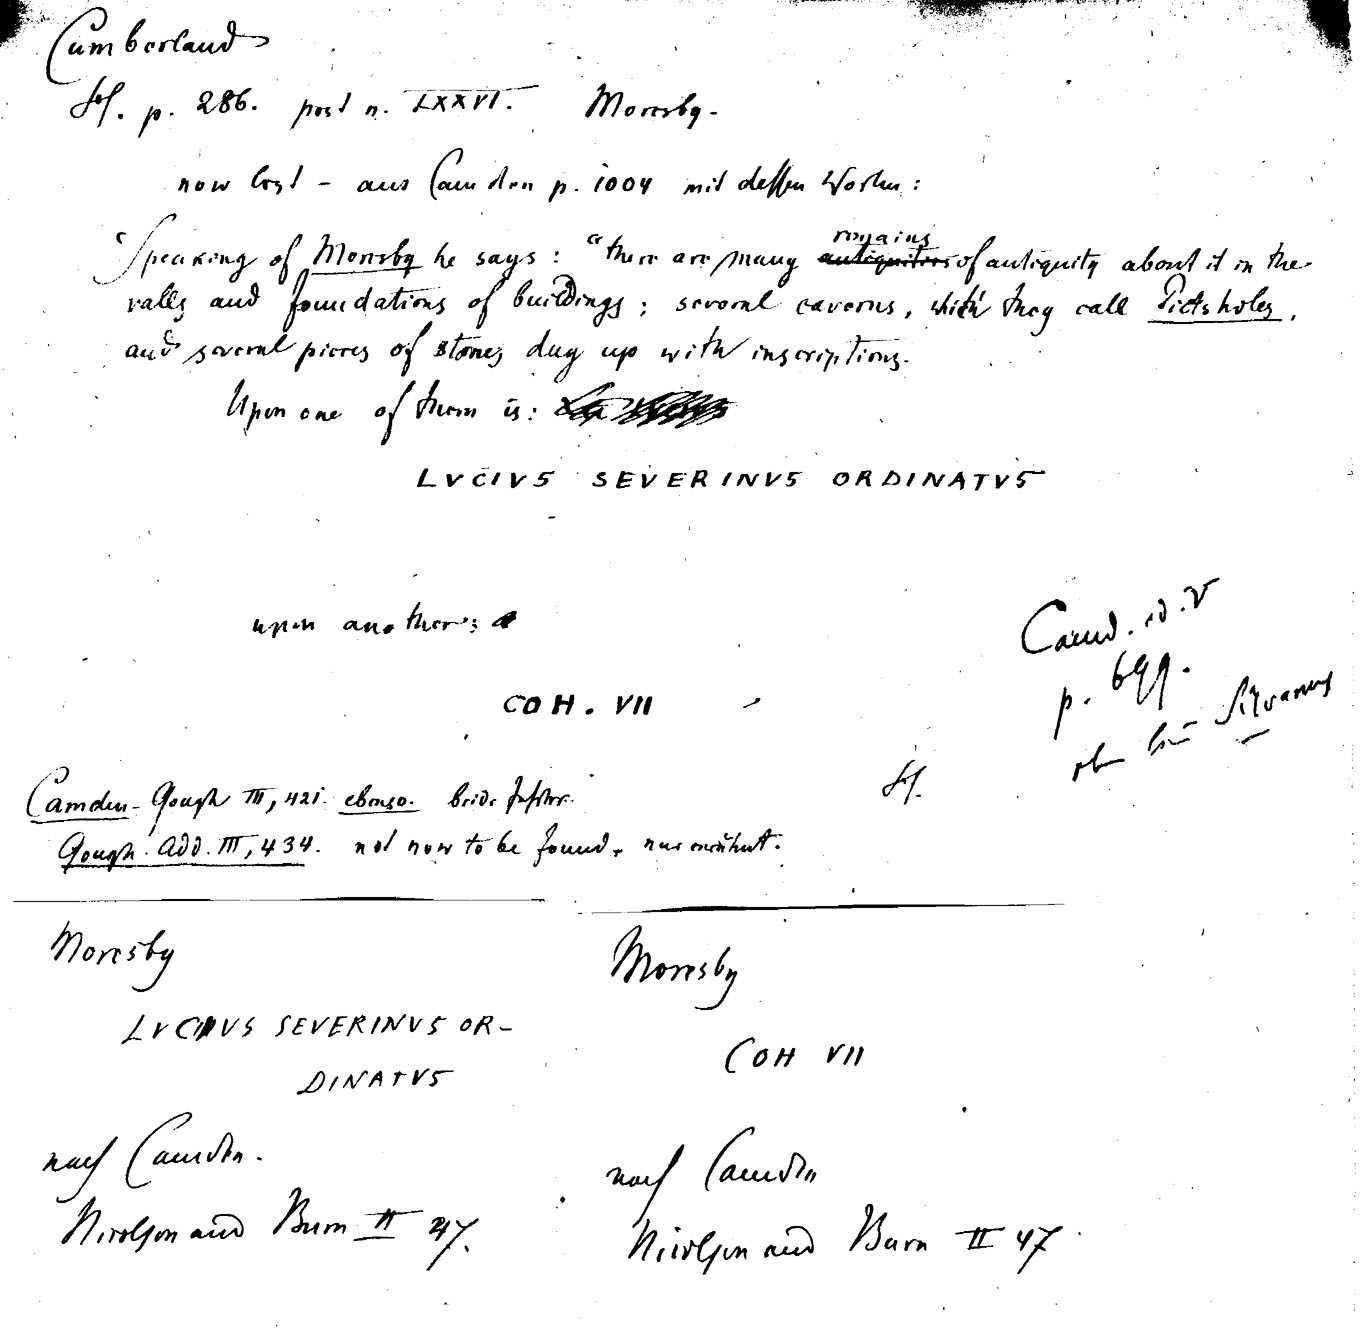 Cumberland
Hf. p. 286. post n. LXXVI. Moresby.
now lost - aus Camden p. 1004 mit dessen Worten:
"Speaking of Moresby he says: "there are many antiquities remains of antiquity about it in the
valls and foundations of buildings; several caverns, which they call Picts holes,
and several pieces of stones dug up with inscriptions.
Upon one of them is:
LVCIVS SEVERINVS ORDINATVS
upon another:
COH. VII
Camd. ed. V
p. 699.
Silvanus
Hf.
Camden-Gough III, 421. ebenso. beide
Gough. Add. III, 434. not now to be found, nur erwähnt.
Moresby
LVCIVS SEVERINVS OR-
DINATVS
nach Camden.
Nicolson and Burn II 47.
Moresby
COH VII
nach Camden
Nicolson and Burn II 47